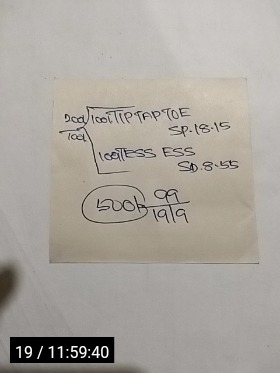 200l 100l TIP TAP TOE
100l SP.18.15
100l TESS ESS
SD.8.55
500k 09
1919
19 / 11:59:40